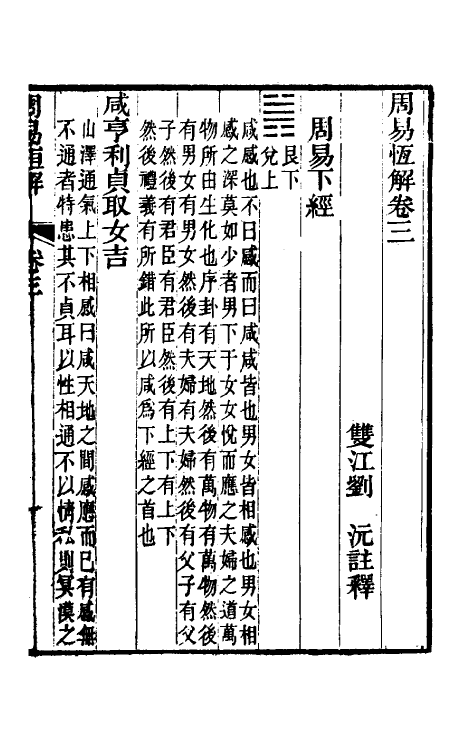 周易恆解卷三
雙江劉　沅註釋
周易下經
䷞艮下兌上
咸感也不曰感而曰咸咸皆也男女皆相感也男女相
感之深莫如少者男下于女女悅而應之夫婦之道萬
物所由生化也序卦有天地然後有萬物有萬物然後
有男女有男女然後有夫婦有夫婦然後有父子有父
子然後有君臣有君臣然後有上下有上下
然後禮義有所錯此所以咸爲下經之首也
咸亨利貞取女吉
山澤通氣上下相感曰咸天地之間感應而已有感無
不通者特患其不貞耳以性相通不以情私則冥漠之
周易恆解
卷三